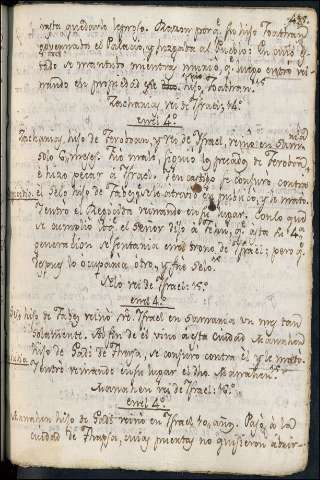 mente quedarlo leproso. Razon porq̃ su hijo Joathan
governaba el Palacio, y juzgaba al Pueblo: En cuio es-
tado se mantubo mientras murió, q̃ luego entró rei-
nando en propiedad su hijo, Joathan.
Zacharias, rei de Israel: 14.º
en el 4.º
Zacharias hijo de Jeroboan, y rei de Israel, reinó en Sama
solo 6 meses. fue malo, siguio los pecados de Jeroboan,
e hizo pecar á Israel. En castigo se conjuró contra
el Selo hijo de Jabés, se atrevio en publico, y le mató,
y entro el Regicida reinando en su lugar. Con lo qual
se cumplio lo q̃ el Señor dijo á Jehu, q̃ asta la 4.ª
generacion se sentaria en el trono de Israel; pero q̃
despues lo ocuparia otro, y fue Selo.
Selo rei de Israel: 15.º
en el 4.º
Selo hijo de Jabes, reinó en Israel en Samaria un mes tan
solamente. Al fin de él vino a esta Ciudad Manahen
hijo de Gadi de Thersa, se conjuro contra el y le mató,
y entro reinando en su lugar el dho Manahen.
Manahen rei de Israel: 16.º
en el 4.º
Manahen hijo de Gadi reinó en Israel 10, años. Pasó á la
ciudad de Thapsa, cuias puertas no quisieron abrir-